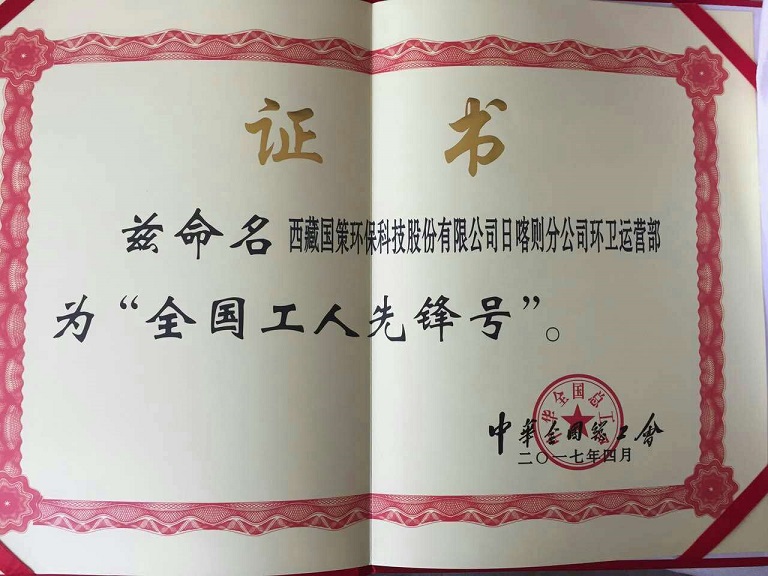 证书
兹命名 西藏国策环保科技股份有限公司日喀则分公司环卫运营部
为“全国工人先锋号”。
中華全國總工會
二〇一七年四月
中华全国总工会